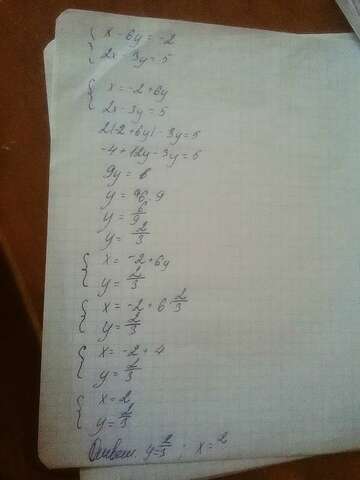 { x - 6y = -2
{ 2x - 3y = 5
{ x = -2 + 6y
2x - 3y = 5
2(-2 + 6y) - 3y = 5
-4 + 12y - 3y = 5
9y = 6
y = 6
y = 6/9
y = 2/3
{ x = -2 + 6y
{ y = 2/3
{ x = -2 + 6 · 2/3
{ y = 2/3
{ x = -2 + 4
{ y = 2/3
{ x = 2
{ y = 2/3
Ответ: y = 2/3 ; x = 2